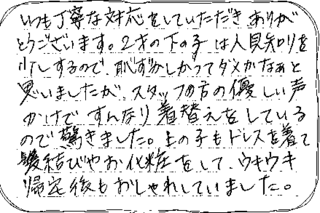 いつも丁寧な対応をしていただき ありが
とうございます。2才の下の子は人見知りを
少しするので、恥ずかしがってダメかなぁと
思いましたが、スタッフの方の優しい声
かけで すんなり着替えをしている
ので驚きました。上の子もドレスを着て
髪結びやお化粧をして、ウキウキ
帰宅後もおしゃれしていました。